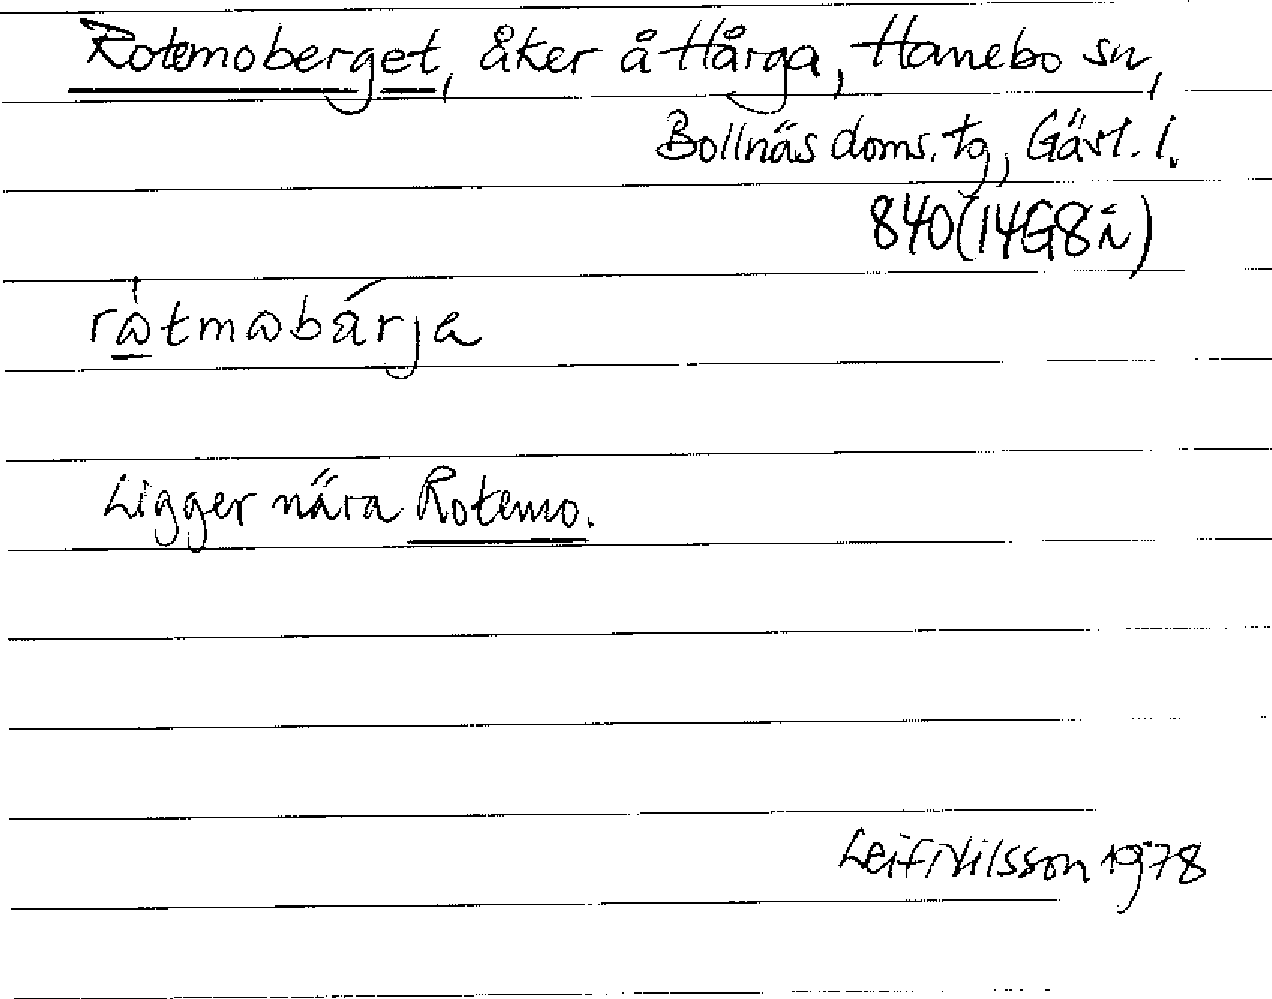 Rotemoberget, åker å Hårga, Hanebo sn,
Bollnäs doms. tg, Gävl. l.
840 (14G8i)
Ligger nära Rotemo.
Leif Nilsson 1978